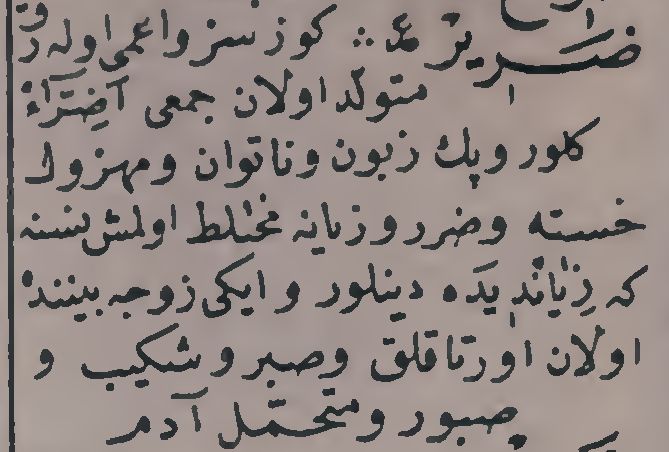 ضَرِيرْ عـ ∴ كوزنسز واعمى اوله رق
متولّد اولان جمعى آضِرَّآءْ
كلور وپك زبون وناتوان ومهزول
خسته وضرر وزيانه مختلط اولمش نسنه
كه زِيَانْدِيدَه دينلور وايكى زوجه بيننده
اولان اورتاقلق وصبر وشكيب و
صبور ومتحمّل آدم